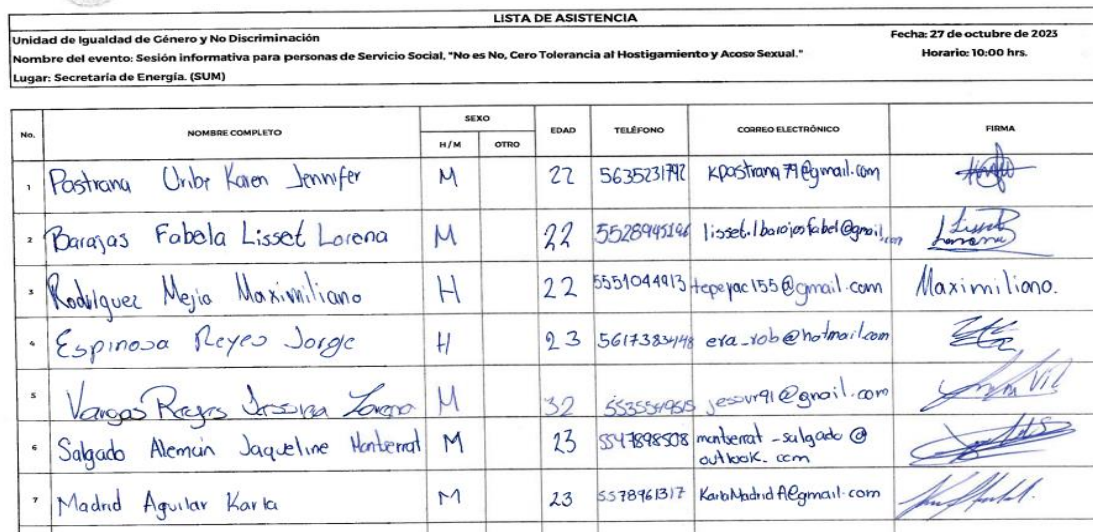 LISTA DE ASISTENCIA
Unidad de Igualdad de Género y No Discriminación
Fecha: 27 de octubre de 2023
Nombre del evento: Sesión informativa para personas de Servicio Social, "No es No, Cero Tolerancia al Hostigamiento y Acoso Sexual."
Horario: 10:00 hrs.
Lugar: Secretaría de Energía. (SUM)
No. NOMBRE COMPLETO SEXO EDAD TELÉFONO CORREO ELECTRÓNICO FIRMA
H / M OTRO
1 Pastrana Uribe Karen Jennifer M 22 5635231792 kpastrana79@gmail.com
2 Barajas Fabela Lisset Lorena M 22 lisset.lbarajasfabel@gmail.com Lisset
Lorena
3 Rodríguez Mejia Maximiliano H 22 5551044913 tepeyac155@gmail.com Maximiliano.
4 Espinosa Reyes Jorge H 23 5617383448 era_rob@hotmail.com
5 Vargas Reyes Jessica Lorena M 32 jesovr91@gmail.com
6 Salgado Alemán Jaqueline Montserrat M 23 5547898508 montserrat_salgado@
outlook.com
7 Madrid Aguilar Karla M 23 5578961317 KarlaMadridA@gmail.com